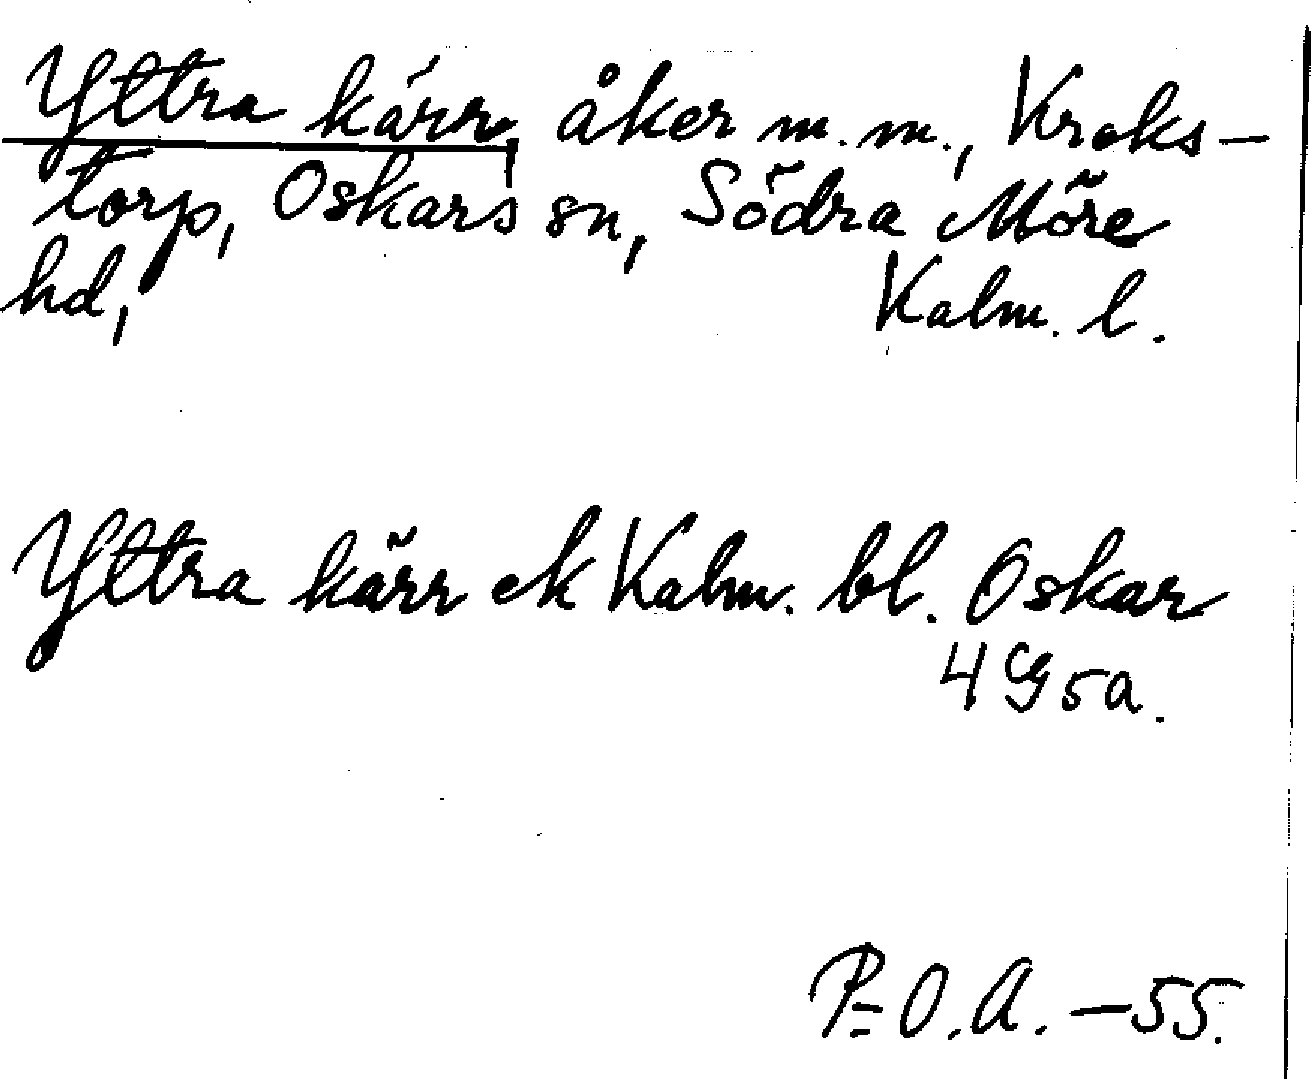 Yttra kärr, åker m.m., Kroks-
torp, Oskars sn, Södra Möre
hd, Kalm. l.
Yttra kärr ek Kalm. bl. Oskar
4 G 5 a.
P-O.A. -55.